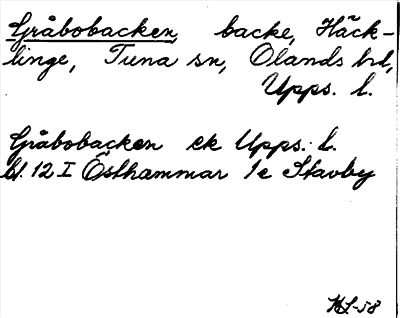 Gråbobacken, backe, Häck-
linge, Tuna sn, Olands hd,
Upps. l.
Gråbobacken ek Upps. l.
bl. 12 I Östhammar 1e Stavby
HS-58